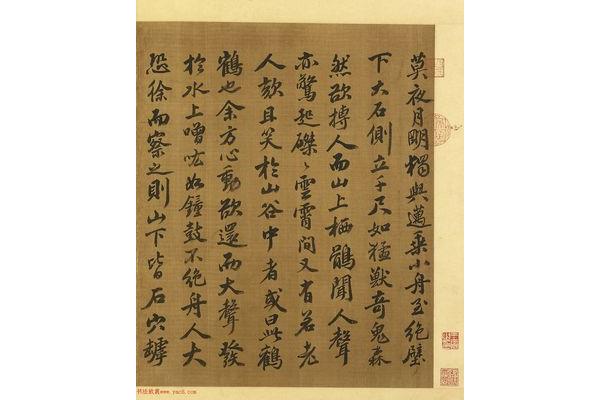 莫夜月明獨與邁乘小舟至絕壁
下大石側立千尺如猛獸奇鬼森
然欲搏人而山上栖鶻聞人聲
亦驚起磔〻雲霄間又有若老
人欬且笑於山谷中者或曰此鸛
鶴也余方心動欲還而大聲發
於水上噌吰如鐘鼓不絕舟人大
恐徐而察之則山下皆石穴罅
书法欣赏www.yac8.com